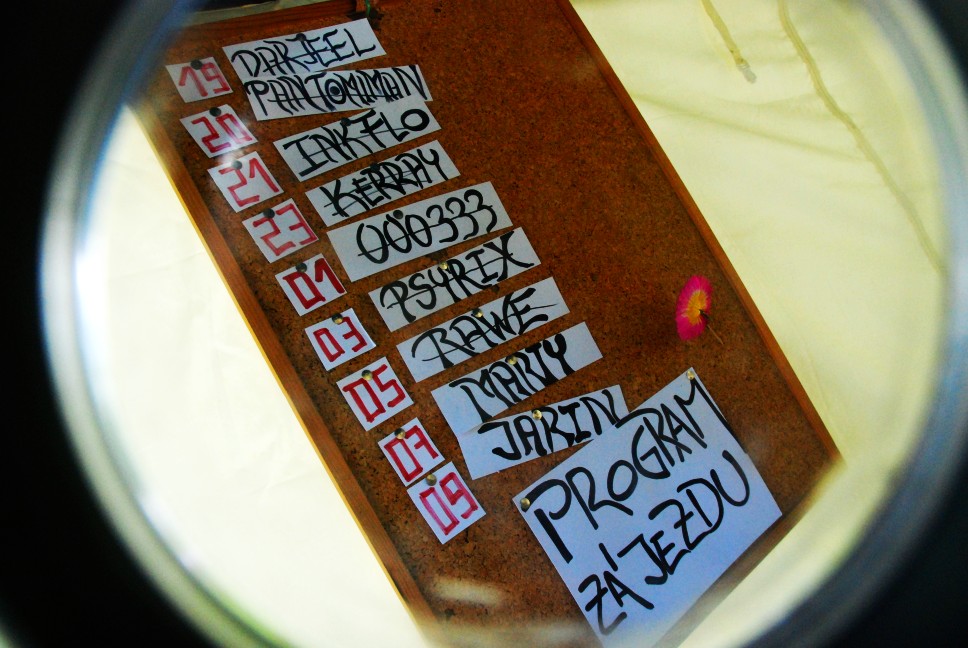 19 DARJEEL
PANTOMIMAN
20 INKFLO
21 KERRAY
23 000333
01 PSYRIX
03 RAWE
05 MARTY
07 JARIN
09
PROGRAM
ZÁJEZDU